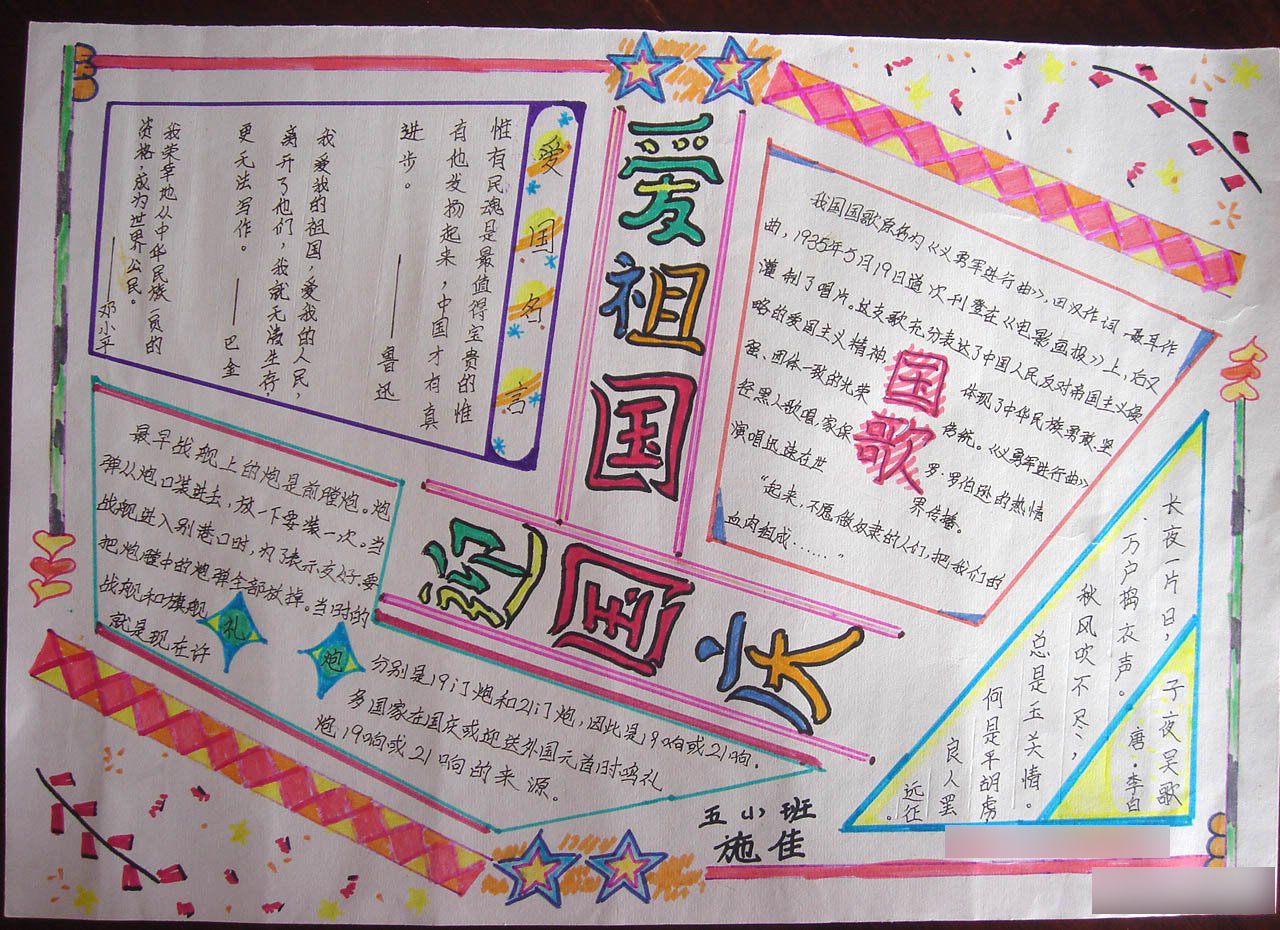 爱祖国
迎国庆
爱国名言
惟有民魂是最值得宝贵的惟
有他发扬起来,中国才有真
进步。
——鲁迅
我爱我的祖国,爱我的人民,
离开了他们,我就无法生存,
更无法写作。——巴金
我荣幸地从中华民族一员的
资格,成为世界公民。
——邓小平
国歌
我国国歌原名为《义勇军进行曲》,田汉作词 聂耳作
曲,1935年5月19日道次刊登在《电影画报》上,后又
灌制了唱片。这支歌充分表达了中国人民反对帝国主义侵
略的爱国主义精神, 体现了中华民族勇敢、坚
强、团体一致的光荣 传统。《义勇军进行曲》
经黑人歌唱家保 罗·罗伯逊的热情
演唱迅速在世 界传播。
“起来,不愿做奴隶的人们,把我们的
血肉组成……”
礼炮
最早战舰上的炮是前膛炮。炮
弹从炮口装进去,放一下要装一次。当
战舰进入别港口时,为了表示友好,要
把炮膛中的炮弹全部放掉。当时的
战舰和旗舰
分别是19门炮和21门炮,因此是19响或21响。
就是现在许
多国家在国庆或迎送外国元首时鸣礼
炮19响或21响的来源。
子夜吴歌
唐·李白
长夜一片日,
万户捣衣声。
秋风吹不尽,
总是玉关情。
何是平胡虏
良人罢
远征。
五(1)班
施佳